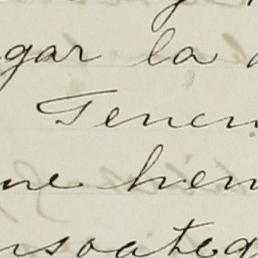 gar la
Tenem
ne hem
nsoateg